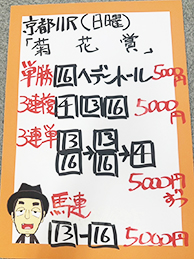 京都11R(日曜)
「菊花賞」
単勝 16 ヘデントール 5000円
3連複 4 13 16 5000円
3連単 13 16 → 13 16 → 4
5000円ずつ
馬連
13-16 5000円